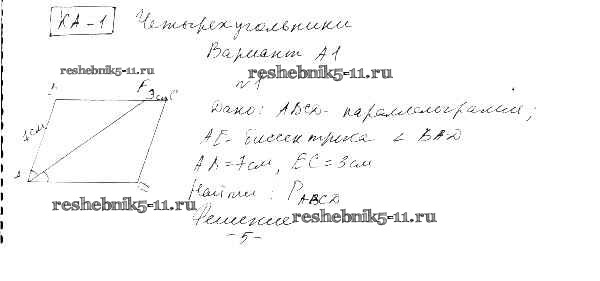 КА-1 Четырехугольники
Вариант А1
reshebnik5-11.ru reshebnik5-11.ru
N1
E 3см C
7см
Дано: ABCD - параллелограмм;
AE - биссектриса ∠ BAD
AB = 7см, EC = 3см
Найти: P ABCD
reshebnik5-11.ru
Решение reshebnik5-11.ru
-5-